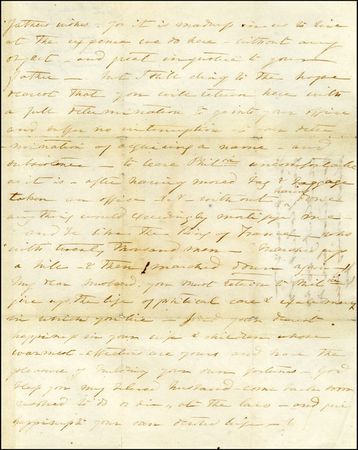 Fathers wishes - for it is madness in us to live
at the expense we do here - without any
object - and great injustice to your
Father - but I still cling to the hope
dearest that you will return here with
a full determination to go into your office
and suffer no interruption in our deter
mination of acquiring a name and
subsistence - to leave Phil uncomfortable
as it is - after having moved bag & baggage
taken an office &c &c without
anything would exceedingly me
and be like the King of France - who
with twenty thousand men - marched up
a hill - & then marched down again
My dear husband you must return to Phil
give up the life of political care &
in which you live - find your dearest
happiness in your wife & children whose
warmest affections are yours and have the
pleasure of making your own fortune - God
bless you my beloved husband come back soon
resolved to do or die, at the law - and give
happiness to your own devoted wife -